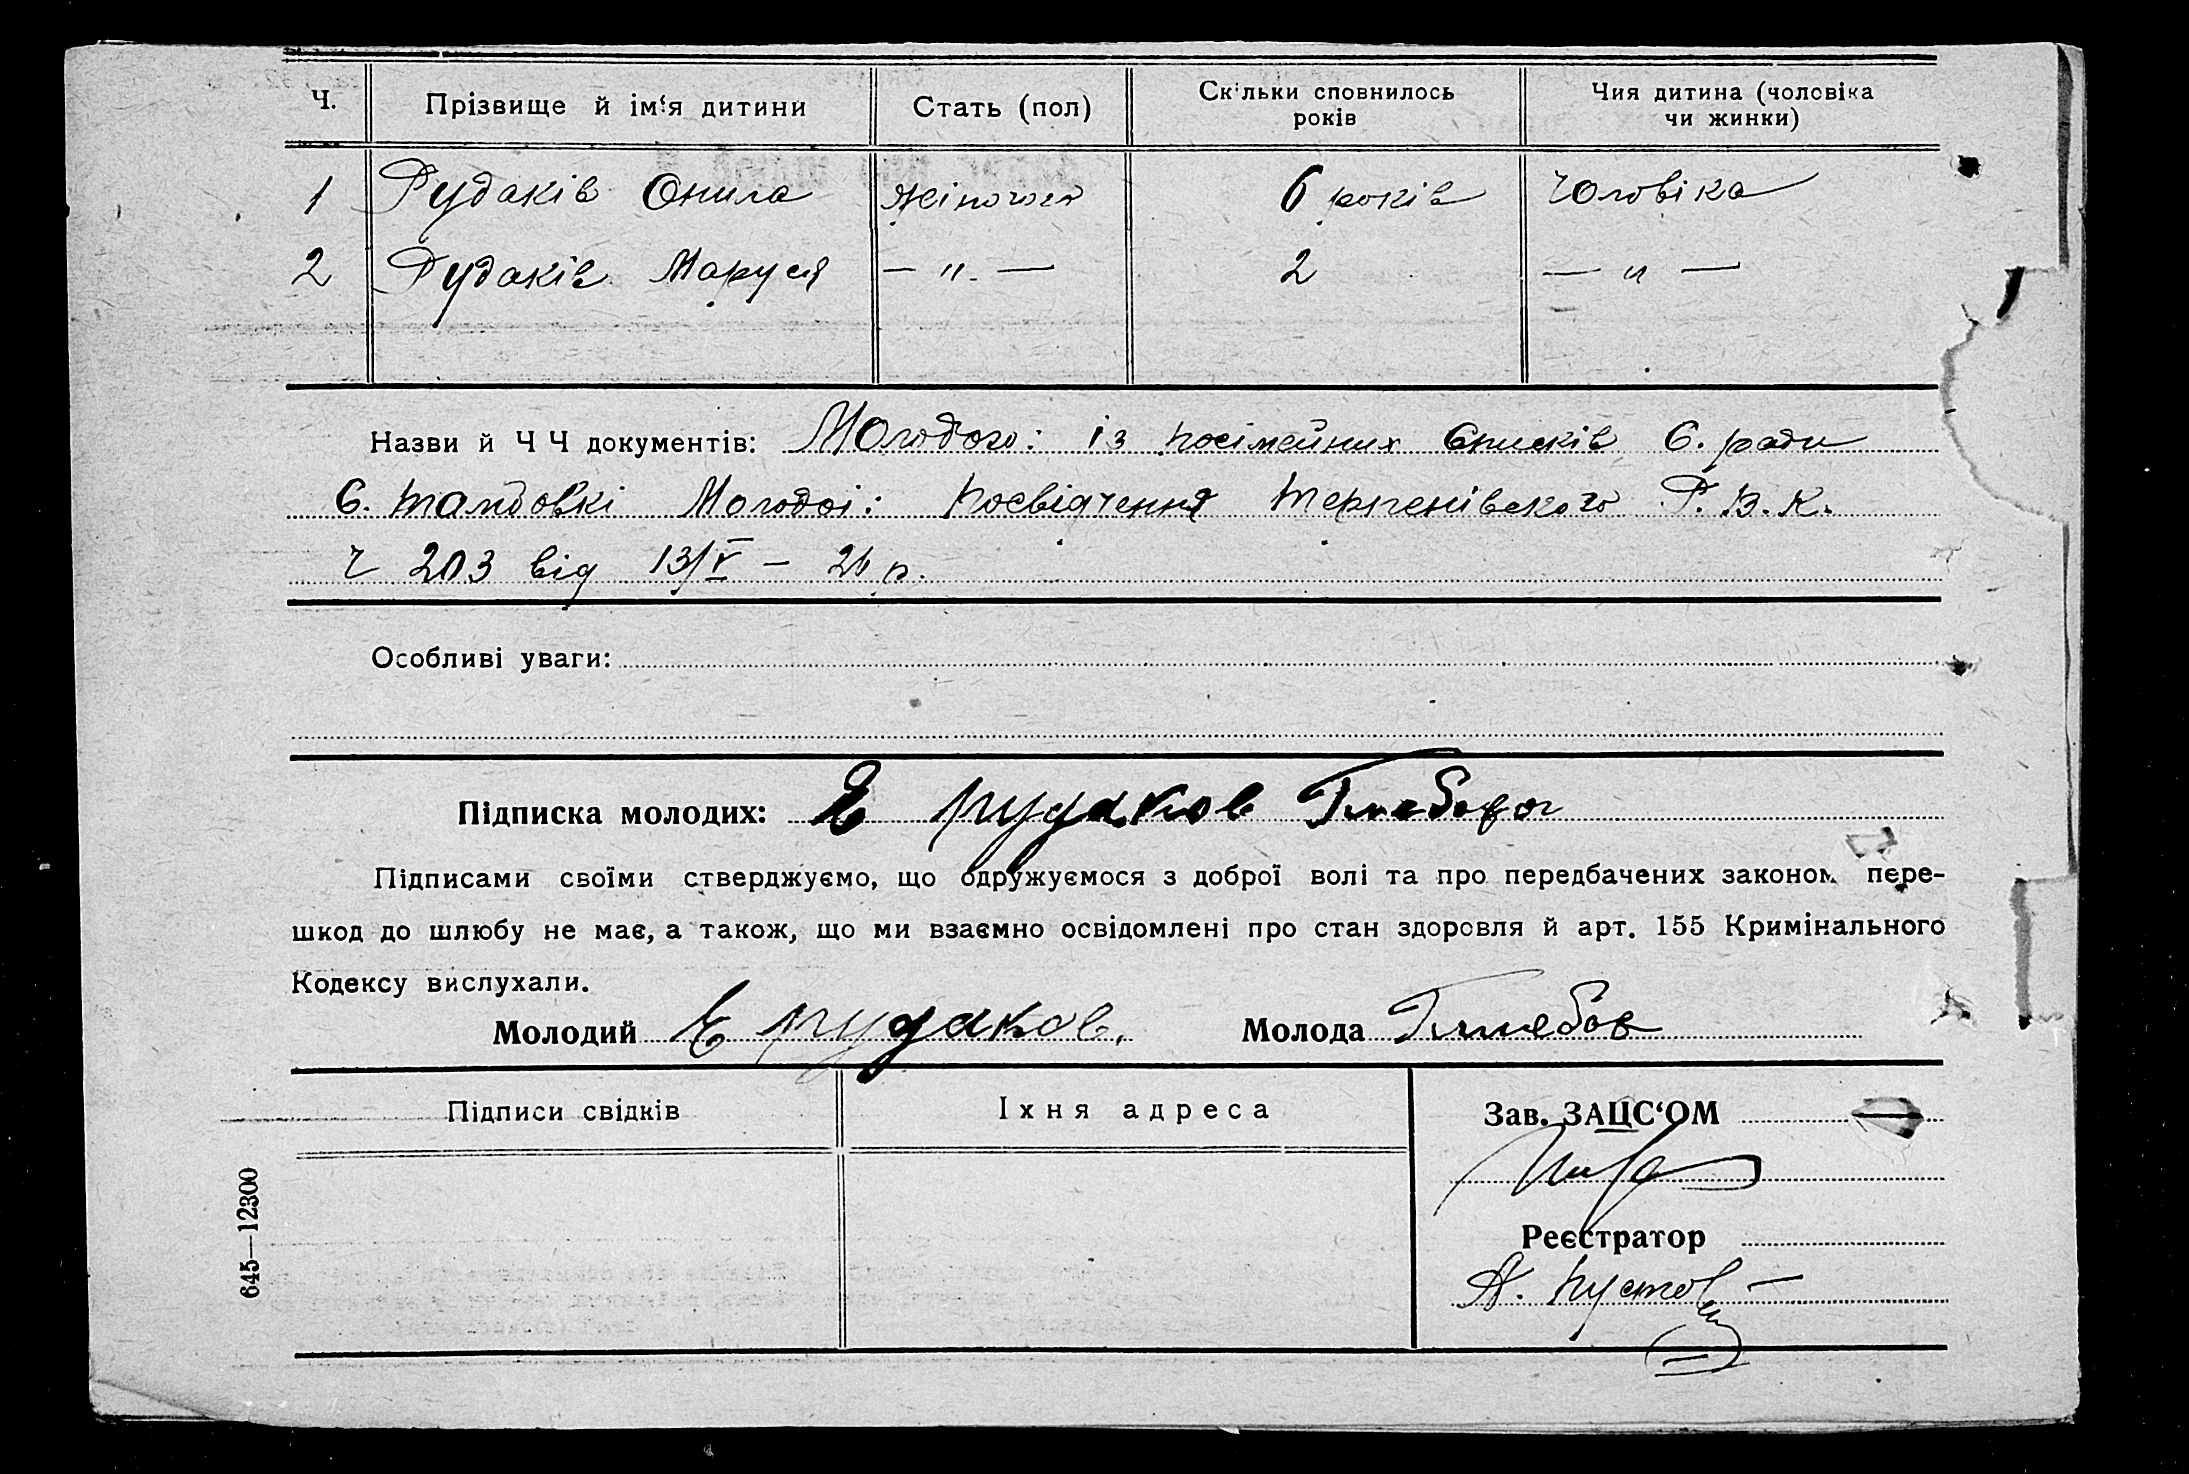 Ч. Прізвище й ім‘я дитини Стать (пол) Скільки сповнилось років Чия дитина (чоловіка чи жинки)
1 Рудаків Онила жіночого 6 років чоловіка
2 Рудаків Маруся — " — 2 — " —
Назви й Ч Ч документів: Молодого: із посімейних списків С. ради
С. Молодоі: посвідчення Р. В. К.
Ч 203 від 13/V — 26 р.
Особливі уваги:
Підписка молодих: Е рудаков
Підписами своїми стверджуємо, що одружуємося з доброї волі та про передбачених законом пере-
шкод до шлюбу не має, а також, що ми взаємно освідомлені про стан здоровля й арт. 155 Кримінального
Кодексу вислухали.
Молодий Е рудаков. Молода
Підписи свідків Їхня адреса Зав. ЗАЦС‘ОМ
Реєстратор
А.
645—12300